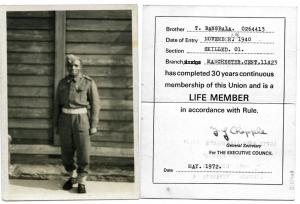 Brother T. BANGBALA. 0264413
Date of Entry NOVEMBER. 1940
Section SKILLED. 01.
Branch MANCHESTER.CENT.11A25
has completed 30 years continuous
membership of this Union and is a
LIFE MEMBER
in accordance with Rule.
General Secretary
For THE EXECUTIVE COUNCIL.
Date MAY. 1972.